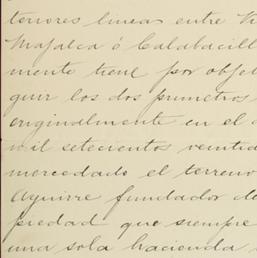 teriores lineas entre Vi
Majalca ó Calabacill
mente tiene por obje
guir los dos primeros
originalmente en el a
mil setecientos veintid
mercedado el terreno
Aguirre fundador de
piedad que siempre
una sola hacienda